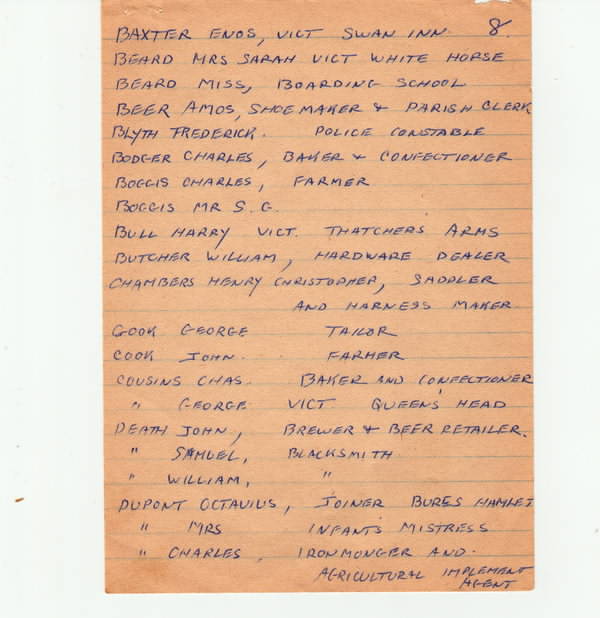 BAXTTER ENOS, VICT SWAN INN. 8.
BEARD MRS SARAH VICT WHITE HORSE
BEARD MISS, BOARDING SCHOOL
BEER AMOS, SHOEMAKER & PARISH CLERK
BLYTH FREDERICK. POLICE CONSTABLE
BODGER CHARLES, BAKER & CONFECTIONER
BOGGIS CHARLES, FARMER
BOGGIS MR S. G.
BULL HARRY VICT. THATCHERS ARMS
BUTCHER WILLIAM, HARDWARE DEALER
CHAMBERS HENRY CHRISTOPHER, SADDLER
AND HARNESS MAKER
COOK GEORGE TAILOR
COOK JOHN. FARMER
COUSINS CHAS. BAKER AND CONFECTIONER
" GEORGE VICT QUEEN'S HEAD
DEATH JOHN, BREWER & BEER RETAILER.
" SAMUEL, BLACKSMITH
" WILLIAM, "
DUPONT OCTAVIUS, JOINER BURES HAMLET
" MRS INFANTS MISTRESS
" CHARLES, IRONMONGER AND.
AGRICULTURAL IMPLEMENT
AGENT